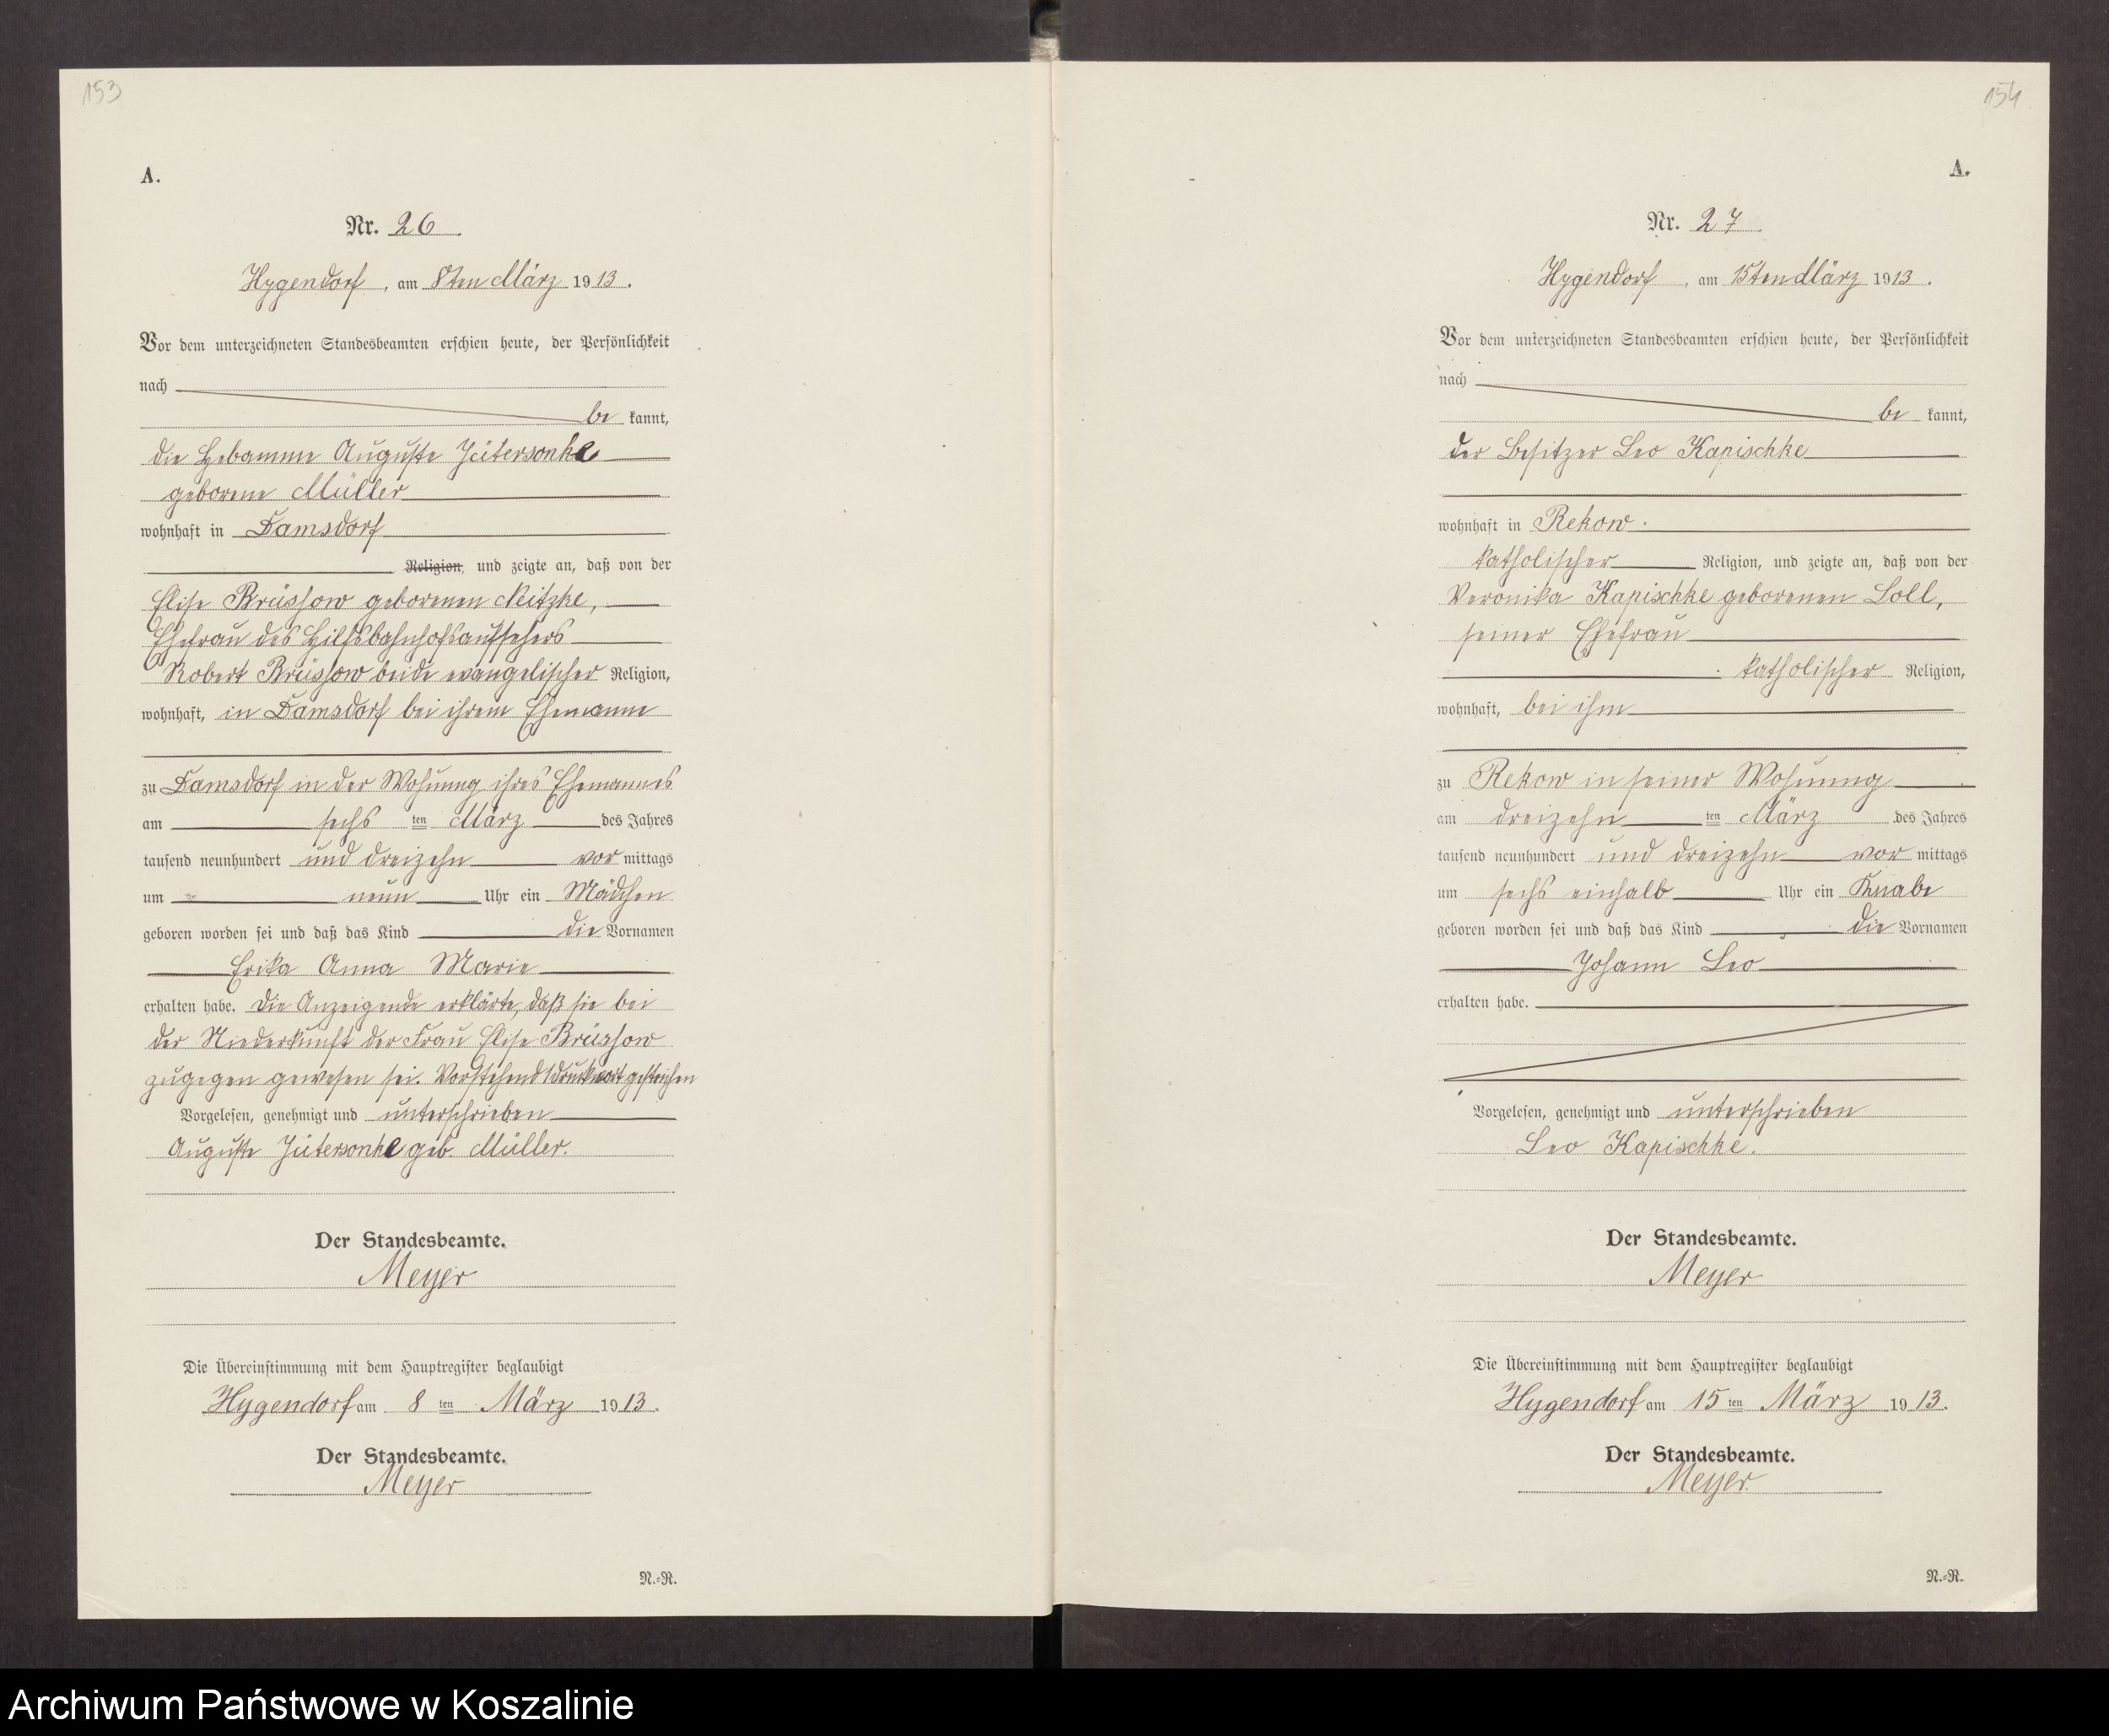 153
A.
Nr. 26.
Hygendorf, am 8ten März 1913.
Vor dem unterzeichneten Standesbeamten erschien heute, der Persönlichkeit
nach
be kannt,
die Hebamme Auguste Jütersonke
geborene Müller
wohnhaft in Damsdorf
Religion, und zeigte an, daß von der
Elise Brüssow geborenen Neitzke,
Ehefrau des Hilfsbahnhofsaufsehers
Robert Brüssow beide evangelischer Religion,
wohnhaft, in Damsdorf bei ihrem Ehemanne
zu Damsdorf in der Wohnung ihres Ehemannes
am sechs ten März des Jahres
tausend neunhundert und dreizehn vor mittags
um neun Uhr ein Mädchen
geboren worden sei und daß das Kind die Vornamen
Erika Anna Marie
erhalten habe. Die Anzeigende erklärte, daß sie bei
der Niederkunft der Frau Elise Brüssow
zugegen gewesen sei. Vorstehend 1 Druckwort gestrichen
Vorgelesen, genehmigt und unterschrieben
Auguste Jütersonke geb. Müller.
Der Standesbeamte.
Meyer
Die Übereinstimmung mit dem Hauptregister beglaubigt
Hygendorf am 8 ten März 1913.
Der Standesbeamte.
Meyer
N.-R.
154
A.
Nr. 27.
Hygendorf, am 15ten März 1913.
Vor dem unterzeichneten Standesbeamten erschien heute, der Persönlichkeit
nach
be kannt,
der Besitzer Leo Kapischke
wohnhaft in Rekow.
katholischer Religion, und zeigte an, daß von der
Veronika Kapischke geborenen Soll,
seiner Ehefrau
katholischer Religion,
wohnhaft, bei ihm
zu Rekow in seiner Wohnung
am dreizehn ten März des Jahres
tausend neunhundert und dreizehn vor mittags
um sechs einhalb Uhr ein Knabe
geboren worden sei und daß das Kind die Vornamen
Johann Leo
erhalten habe.
Vorgelesen, genehmigt und unterschrieben
Leo Kapischke.
Der Standesbeamte.
Meyer
Die Übereinstimmung mit dem Hauptregister beglaubigt
Hygendorf am 15 ten März 1913.
Der Standesbeamte.
Meyer.
N.-R.
Archiwum Państwowe w Koszalinie